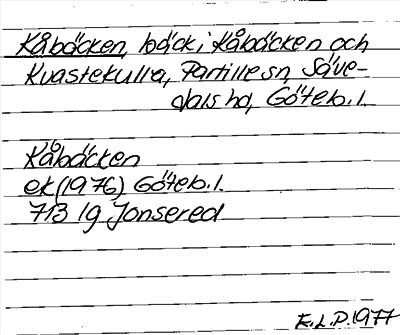 Kåbäcken, bäck i Kåbäcken och
Kvastekulla, Partille sn, Säve-
dals hd, Göteb. l.
Kåbäcken
ek (1976) Göteb. l.
713 lg Jonsered
E.L.P. 1977